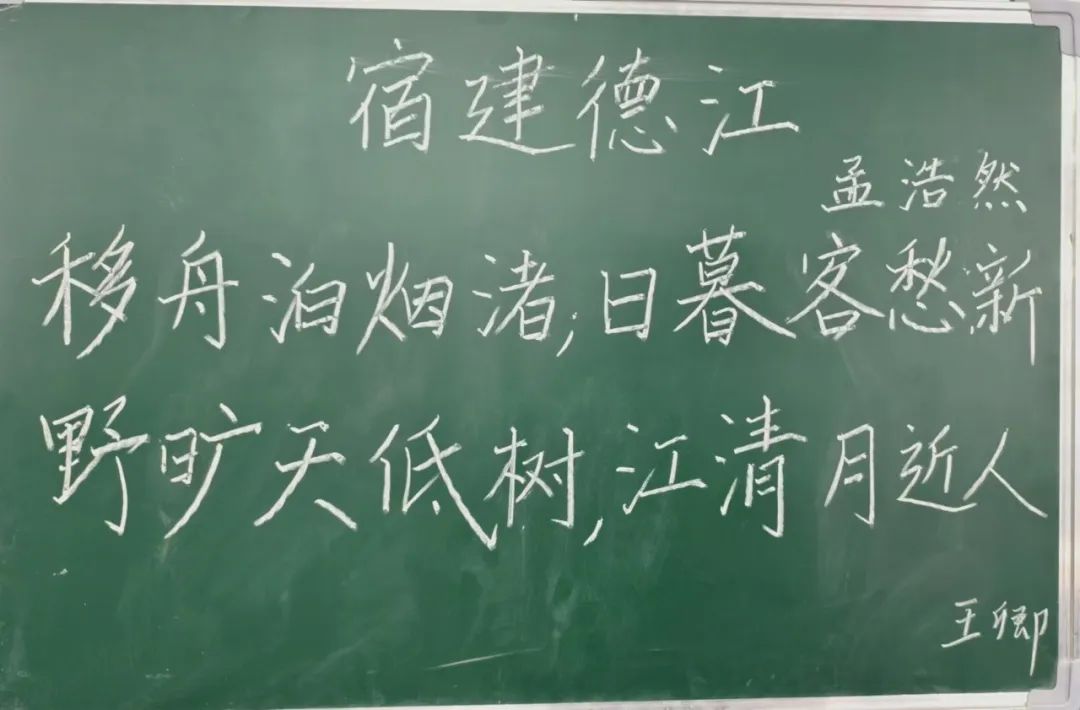 宿建德江
孟浩然
移舟泊烟渚,日暮客愁新
野旷天低树,江清月近人
王卿